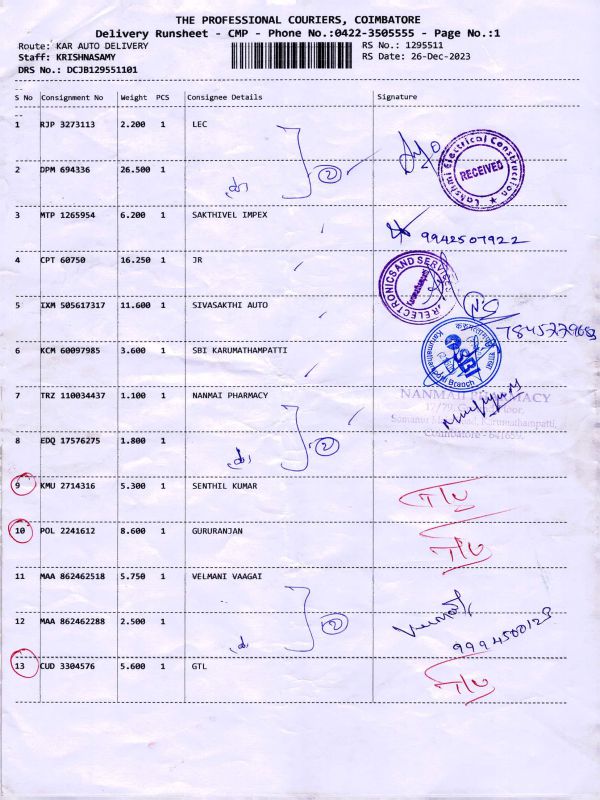 THE PROFESSIONAL COURIERS, COIMBATORE
Delivery Runsheet - CMP - Phone No.:0422-3505555 - Page No.:1
Route: KAR AUTO DELIVERY RS No.: 1295511
Staff: KRISHNASAMY RS Date: 26-Dec-2023
DRS No.: DCJB129551101
S No Consignment No Weight PCS Consignee Details Signature
1 RJP 3273113 2.200 1 LEC
Lakshmi Electrical Construction
RECEIVED
2 DPM 694336 26.500 1 2
3 MTP 1265954 6.200 1 SAKTHIVEL IMPEX
9942507922
4 CPT 60750 16.250 1 JR
JR ELECTRONICS AND SERVICE
Karumathampatti
5 IXM 505617317 11.600 1 SIVASAKTHI AUTO
NS
6 KCM 60097985 3.600 1 SBI KARUMATHAMPATTI
SBI
Karumathampatti Branch
7 TRZ 110034437 1.100 1 NANMAI PHARMACY
NANMAI PHARMACY
Karumathampatti,
Coimbatore - 641659.
8 EDQ 17576275 1.800 1 2
9 KMU 2714316 5.300 1 SENTHIL KUMAR
10 POL 2241612 8.600 1 GURURANJAN
11 MAA 862462518 5.750 1 VELMANI VAAGAI
12 MAA 862462288 2.500 1 2
9994500123
13 CUD 3304576 5.600 1 GTL